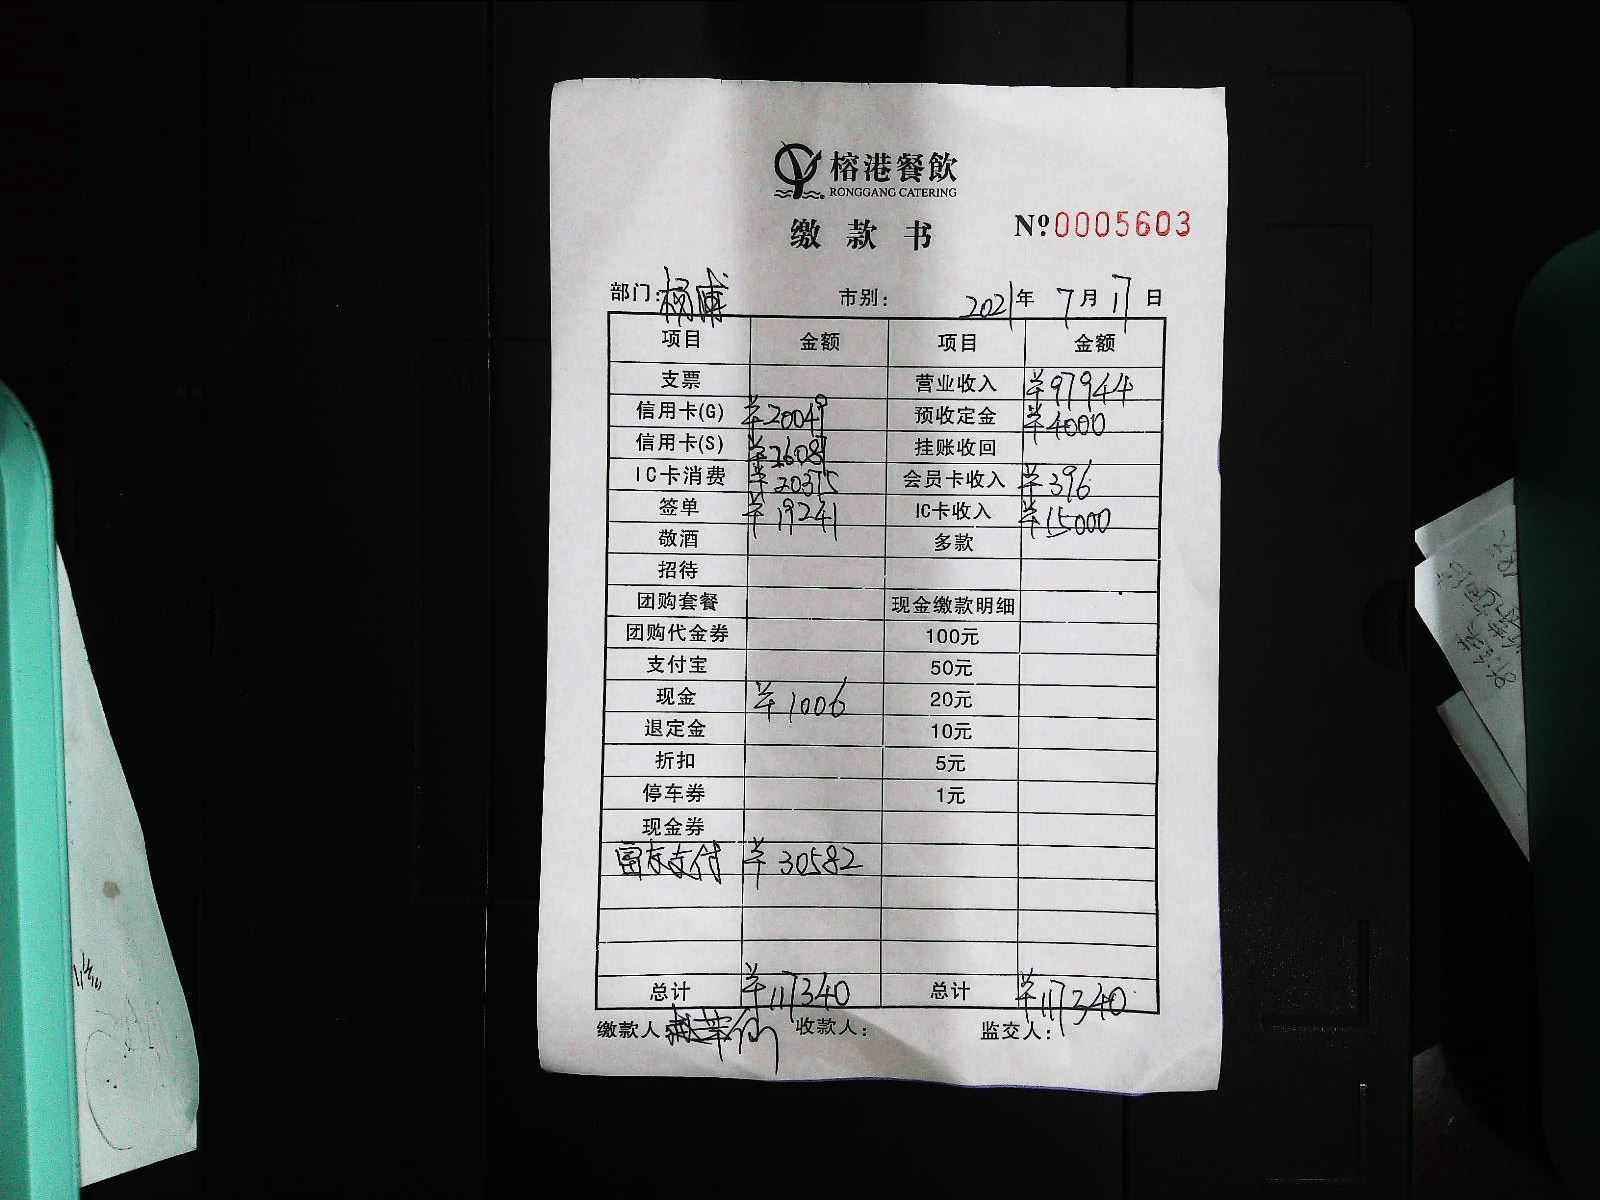 榕港餐飲
RONGGANG CATERING
缴款书
Nº0005603
部门：杨浦 市别： 2021年 7月 17日
项目 金额 项目 金额
支票 营业收入 ¥97944
信用卡(G) ¥20049 预收定金 ¥4000
信用卡(S) ¥26087 挂账收回
IC卡消费 ¥20375 会员卡收入 ¥396
签单 ¥19241 IC卡收入 ¥15000
敬酒 多款
招待
团购套餐 现金缴款明细
团购代金券 100元
支付宝 50元
现金 ¥1006 20元
退定金 10元
折扣 5元
停车券 1元
现金券
富友支付 ¥30582
总计 ¥117340 总计 ¥117340
缴款人： 收款人： 监交人：